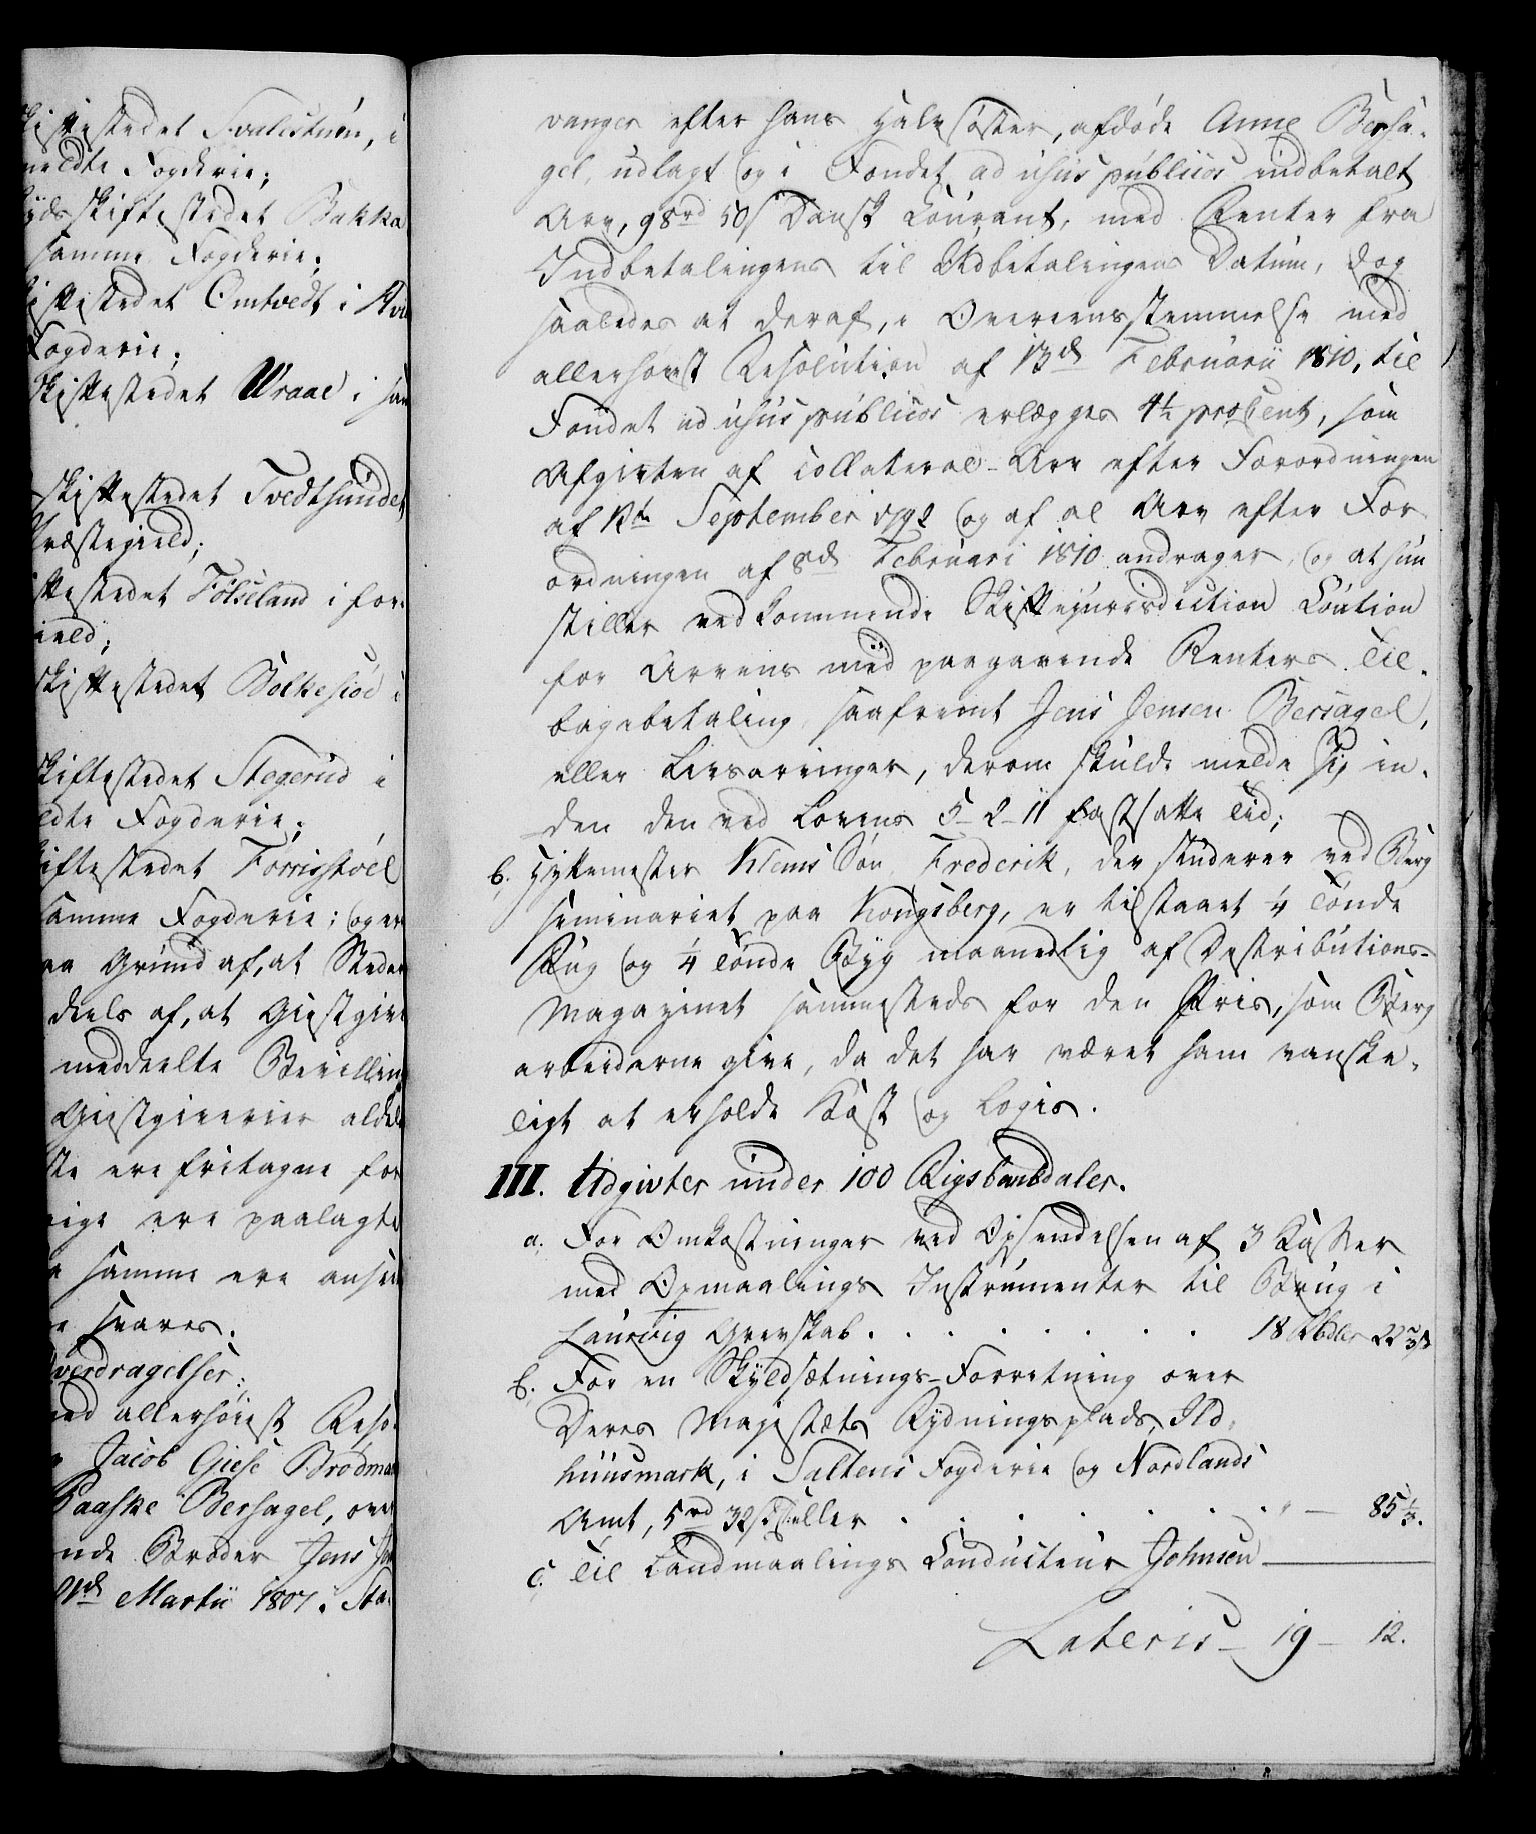 skiftestedet Svalistuen, i
meldte Fogderie;
skiftestedet Bakka
samme Fogderie;
skiftestedet Omtvedt i
Fogderie;
skiftestedet Wraae i
skiftestedet Tvedtsundet
Præstegield;
skiftestedet Følseland i for-
ield;
skiftestedet Bolkesiøe i
skiftestedet Stegerud i
ldte Fogderie;
iftestedet Torrisstøel
samme Fogderie; og er
Grund af, at Steder
deels af, at Giestgive
meddeelte Bevilling
Giestgiverier aldel
ere fritagne for
ere paalagte
samme ere anse
svares.
verdragelser;
ed allerhøiest Reso-
Jacob Giese Brodman
Paaske Bersagel, over
nde Broder Jens Jen
Martii 1807 i Sta-
vanger efter hans Halvsøster, afdøde Anne Bersa-
gel, udlagt og i Fondet ad usus publicos indbetalt
Arv, 98rd 50s Dansk Courant, med Renter fra
Indbetalingens til Udbetalingens Datum, dog
saaledes at deraf, i Overeensstemmelse med
allerhøiest Resolution af 13de Februarii 1810, til
Fondet ad usus publicos erlægges 4½ procent, som
Afgivten af Collateral-Arv efter Forordningen
af 12te September 1792 og af al Arv efter For-
ordningen af 8de Februari 1810 andrager, og at hun
stiller vedkommende Skiftejurisdiction Caution
for Arvens med paagaaende Renters Til-
bagebetaling, saafremt Jens Jensen Bersagel,
eller Livsarvinger, derom skulde melde sig in-
den den ved Lovens 5-2-11 fastsatte Tid;
b. Hyttemester Klems Søn, Frederik, der studerer ved Berg
seminariet paa Kongsberg, er tilstaaet ¼ Tønde
Rug og ¼ Tønde Byg maanedlig af Destributions-
Magazinet sammesteds for den Priis, som Berg
arbeiderne give, da det har været ham vanske-
ligt at erholde Kost og Logis.
III. Udgivter under 100 Rigsbankdaler.
a. For Omkostninger ved Opsendelsen af 3 Kasser
med Opmaalings Instrumenter til Brug i
Laurvig Grevskab . . . . . . . . 18 Rbdler 22⅔s
b. For en Skyldsætnings-Forretning over
Deres Majestæts Rydningsplads, Ild-
huusmark, i Saltens Fogderie og Nordlands
Amt, 5rd 32s eller . . . . . . . „ — 85⅓.
c. Til Landmaalings Conducteur Johnsen
Lateris — 19 — 12.